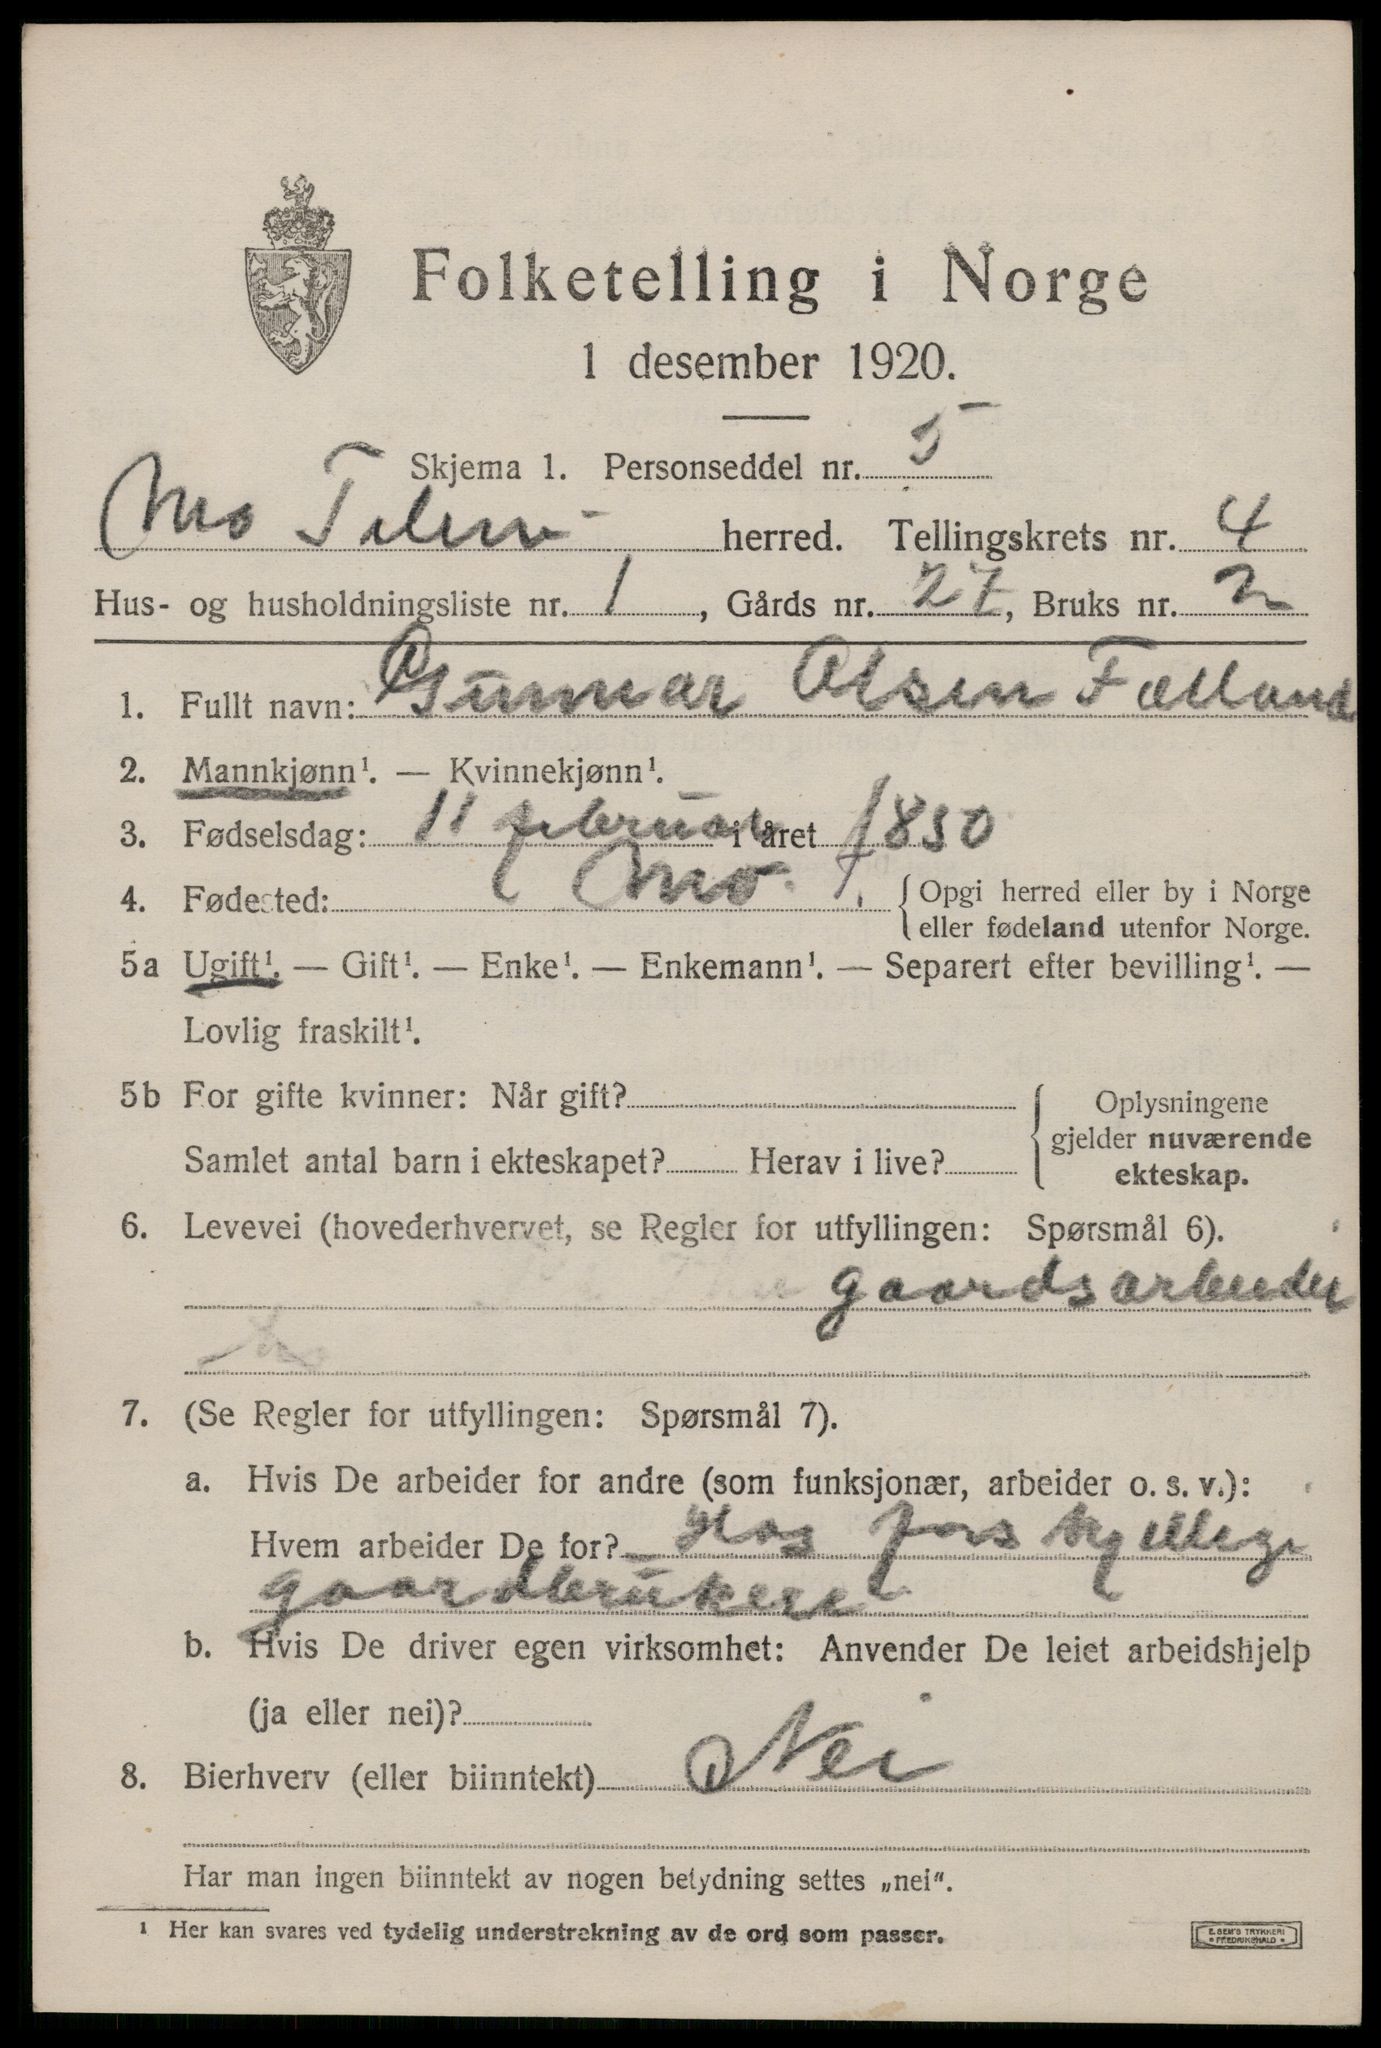 Folketelling i Norge
1 desember 1920.
Skjema 1. Personseddel nr. 5
Mo Telem herred. Tellingskrets nr. 4
Hus- og husholdningsliste nr. 1, Gårds nr. 27, Bruks nr. 2
1. Fullt navn: Gunnar Olsen Fælland
2. Mannkjønn¹. — Kvinnekjønn¹.
3. Fødselsdag: 11 februar i året 1850
4. Fødested: Mo. T. Opgi herred eller by i Norge
eller fødeland utenfor Norge.
5a Ugift¹. — Gift¹. — Enke¹. — Enkemann¹. — Separert efter bevilling¹. —
Lovlig fraskilt¹.
5b For gifte kvinner: Når gift? Oplysningene
gjelder nuværende
Samlet antal barn i ekteskapet? Herav i live? ekteskap.
6. Levevei (hovederhvervet, se Regler for utfyllingen: Spørsmål 6).
gaardsarbeider
7. (Se Regler for utfyllingen: Spørsmål 7).
a. Hvis De arbeider for andre (som funksjonær, arbeider o. s. v.):
Hvem arbeider De for? Hos forskjellige
gaardbrukere
b. Hvis De driver egen virksomhet: Anvender De leiet arbeidshjelp
(ja eller nei)?
8. Bierhverv (eller biinntekt) Nei
Har man ingen biinntekt av nogen betydning settes „nei".
¹ Her kan svares ved tydelig understrekning av de ord som passer.
E. SEM'S TRYKKERI
FREDRIKSHALD